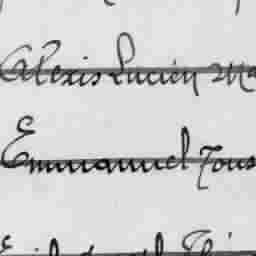 Alexis Lucien Ma
Emmanuel Tous